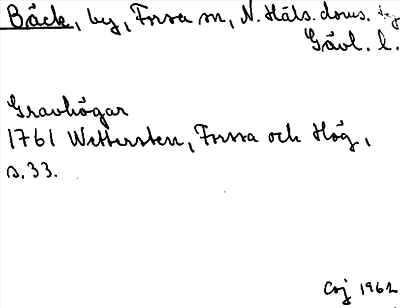 Bäck, by, Forsa sn, N. Häls. doms.
Gävl. l.
Gravhögar
1761 Wettersten, Forssa och Hög,
s. 33.
Coj 1962